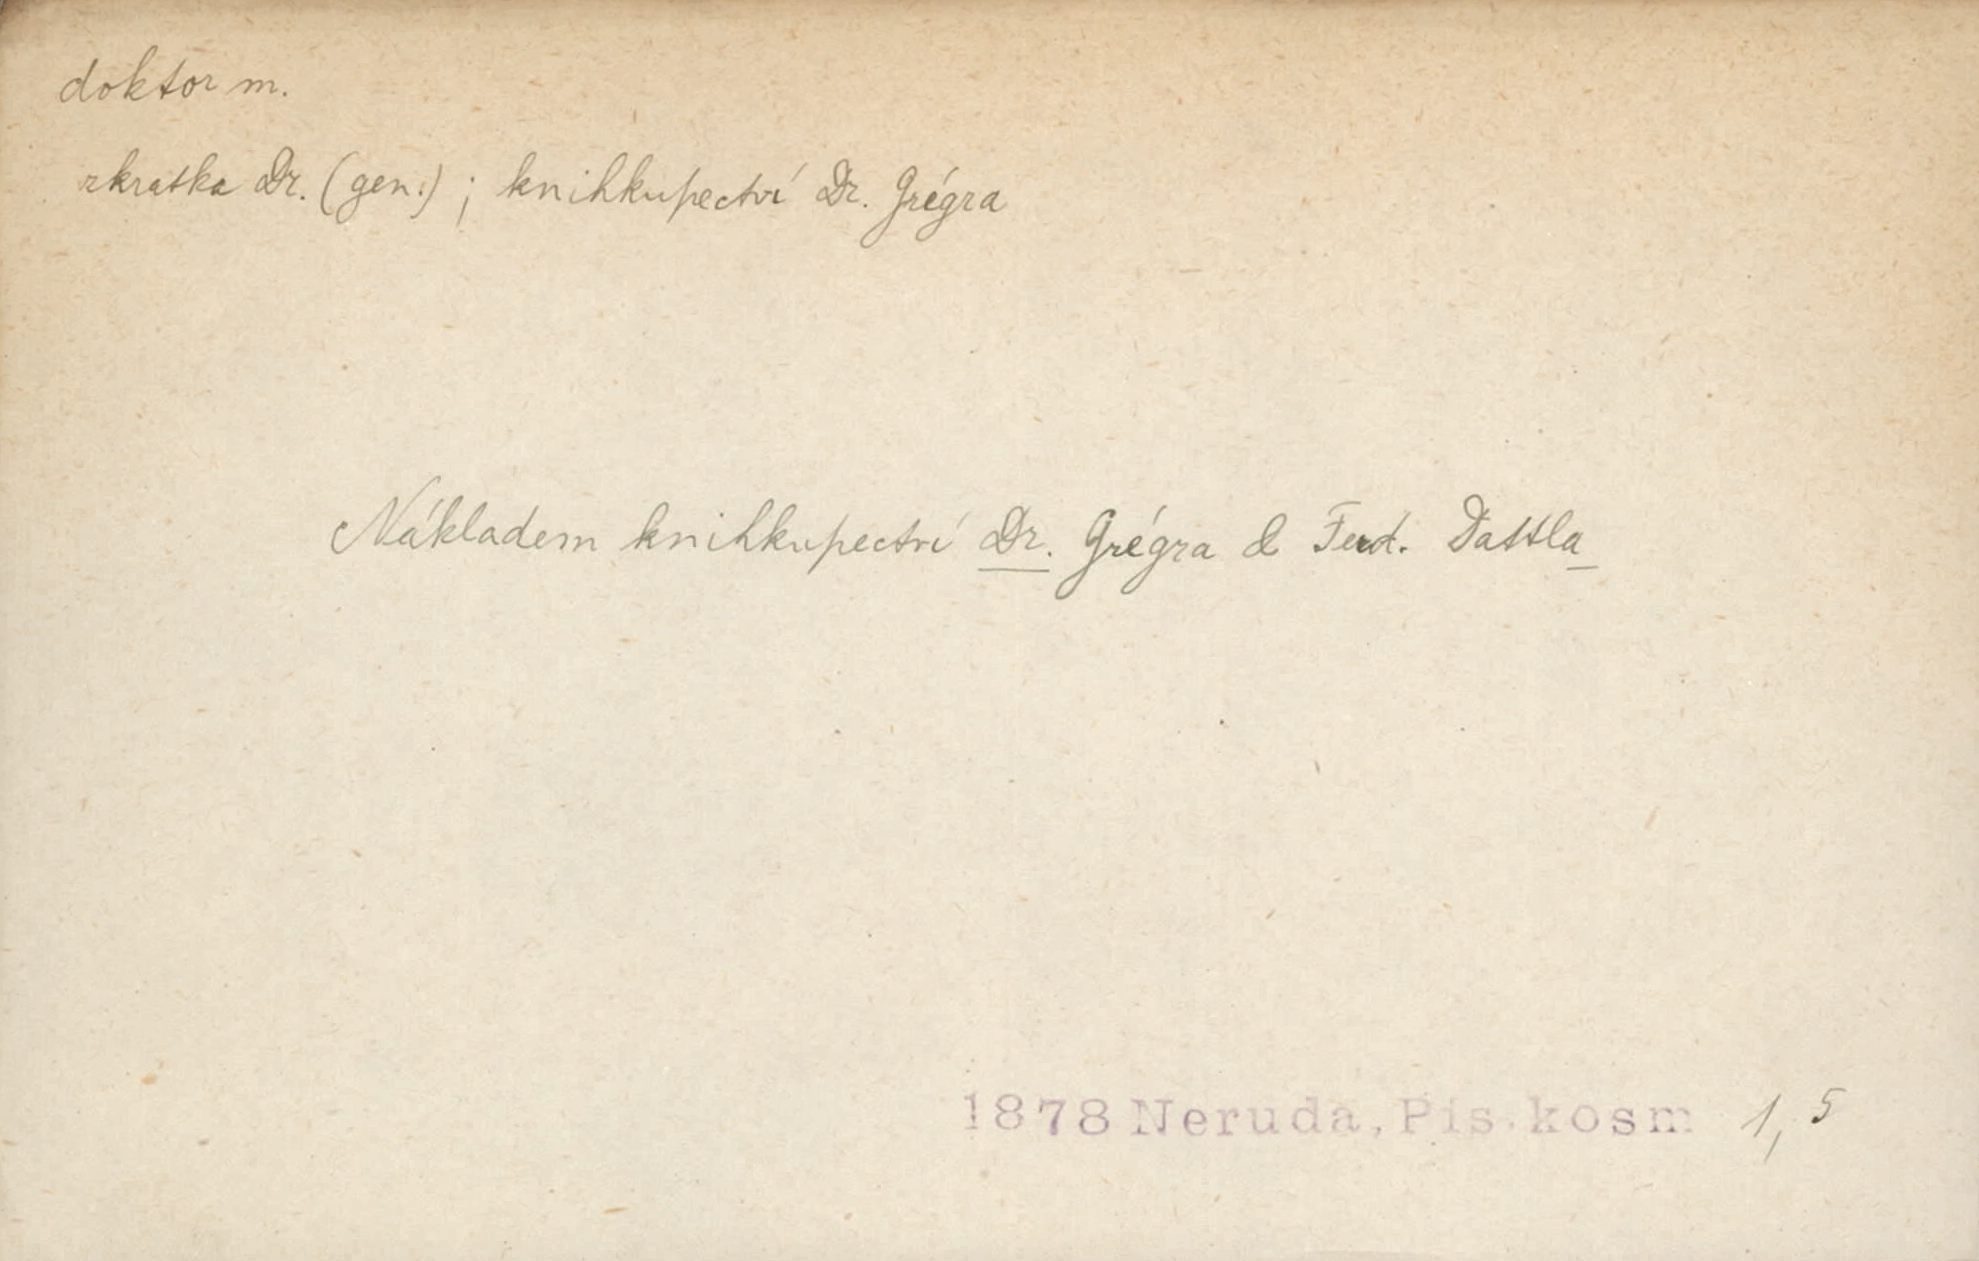 doktor m.
zkratka Dr. (gen.) ; knihkupectví Dr. Grégra
Nákladem knihkupectví Dr. Grégra & Ferd. Dattla
1878 Neruda, Pís. kosm 1, 5